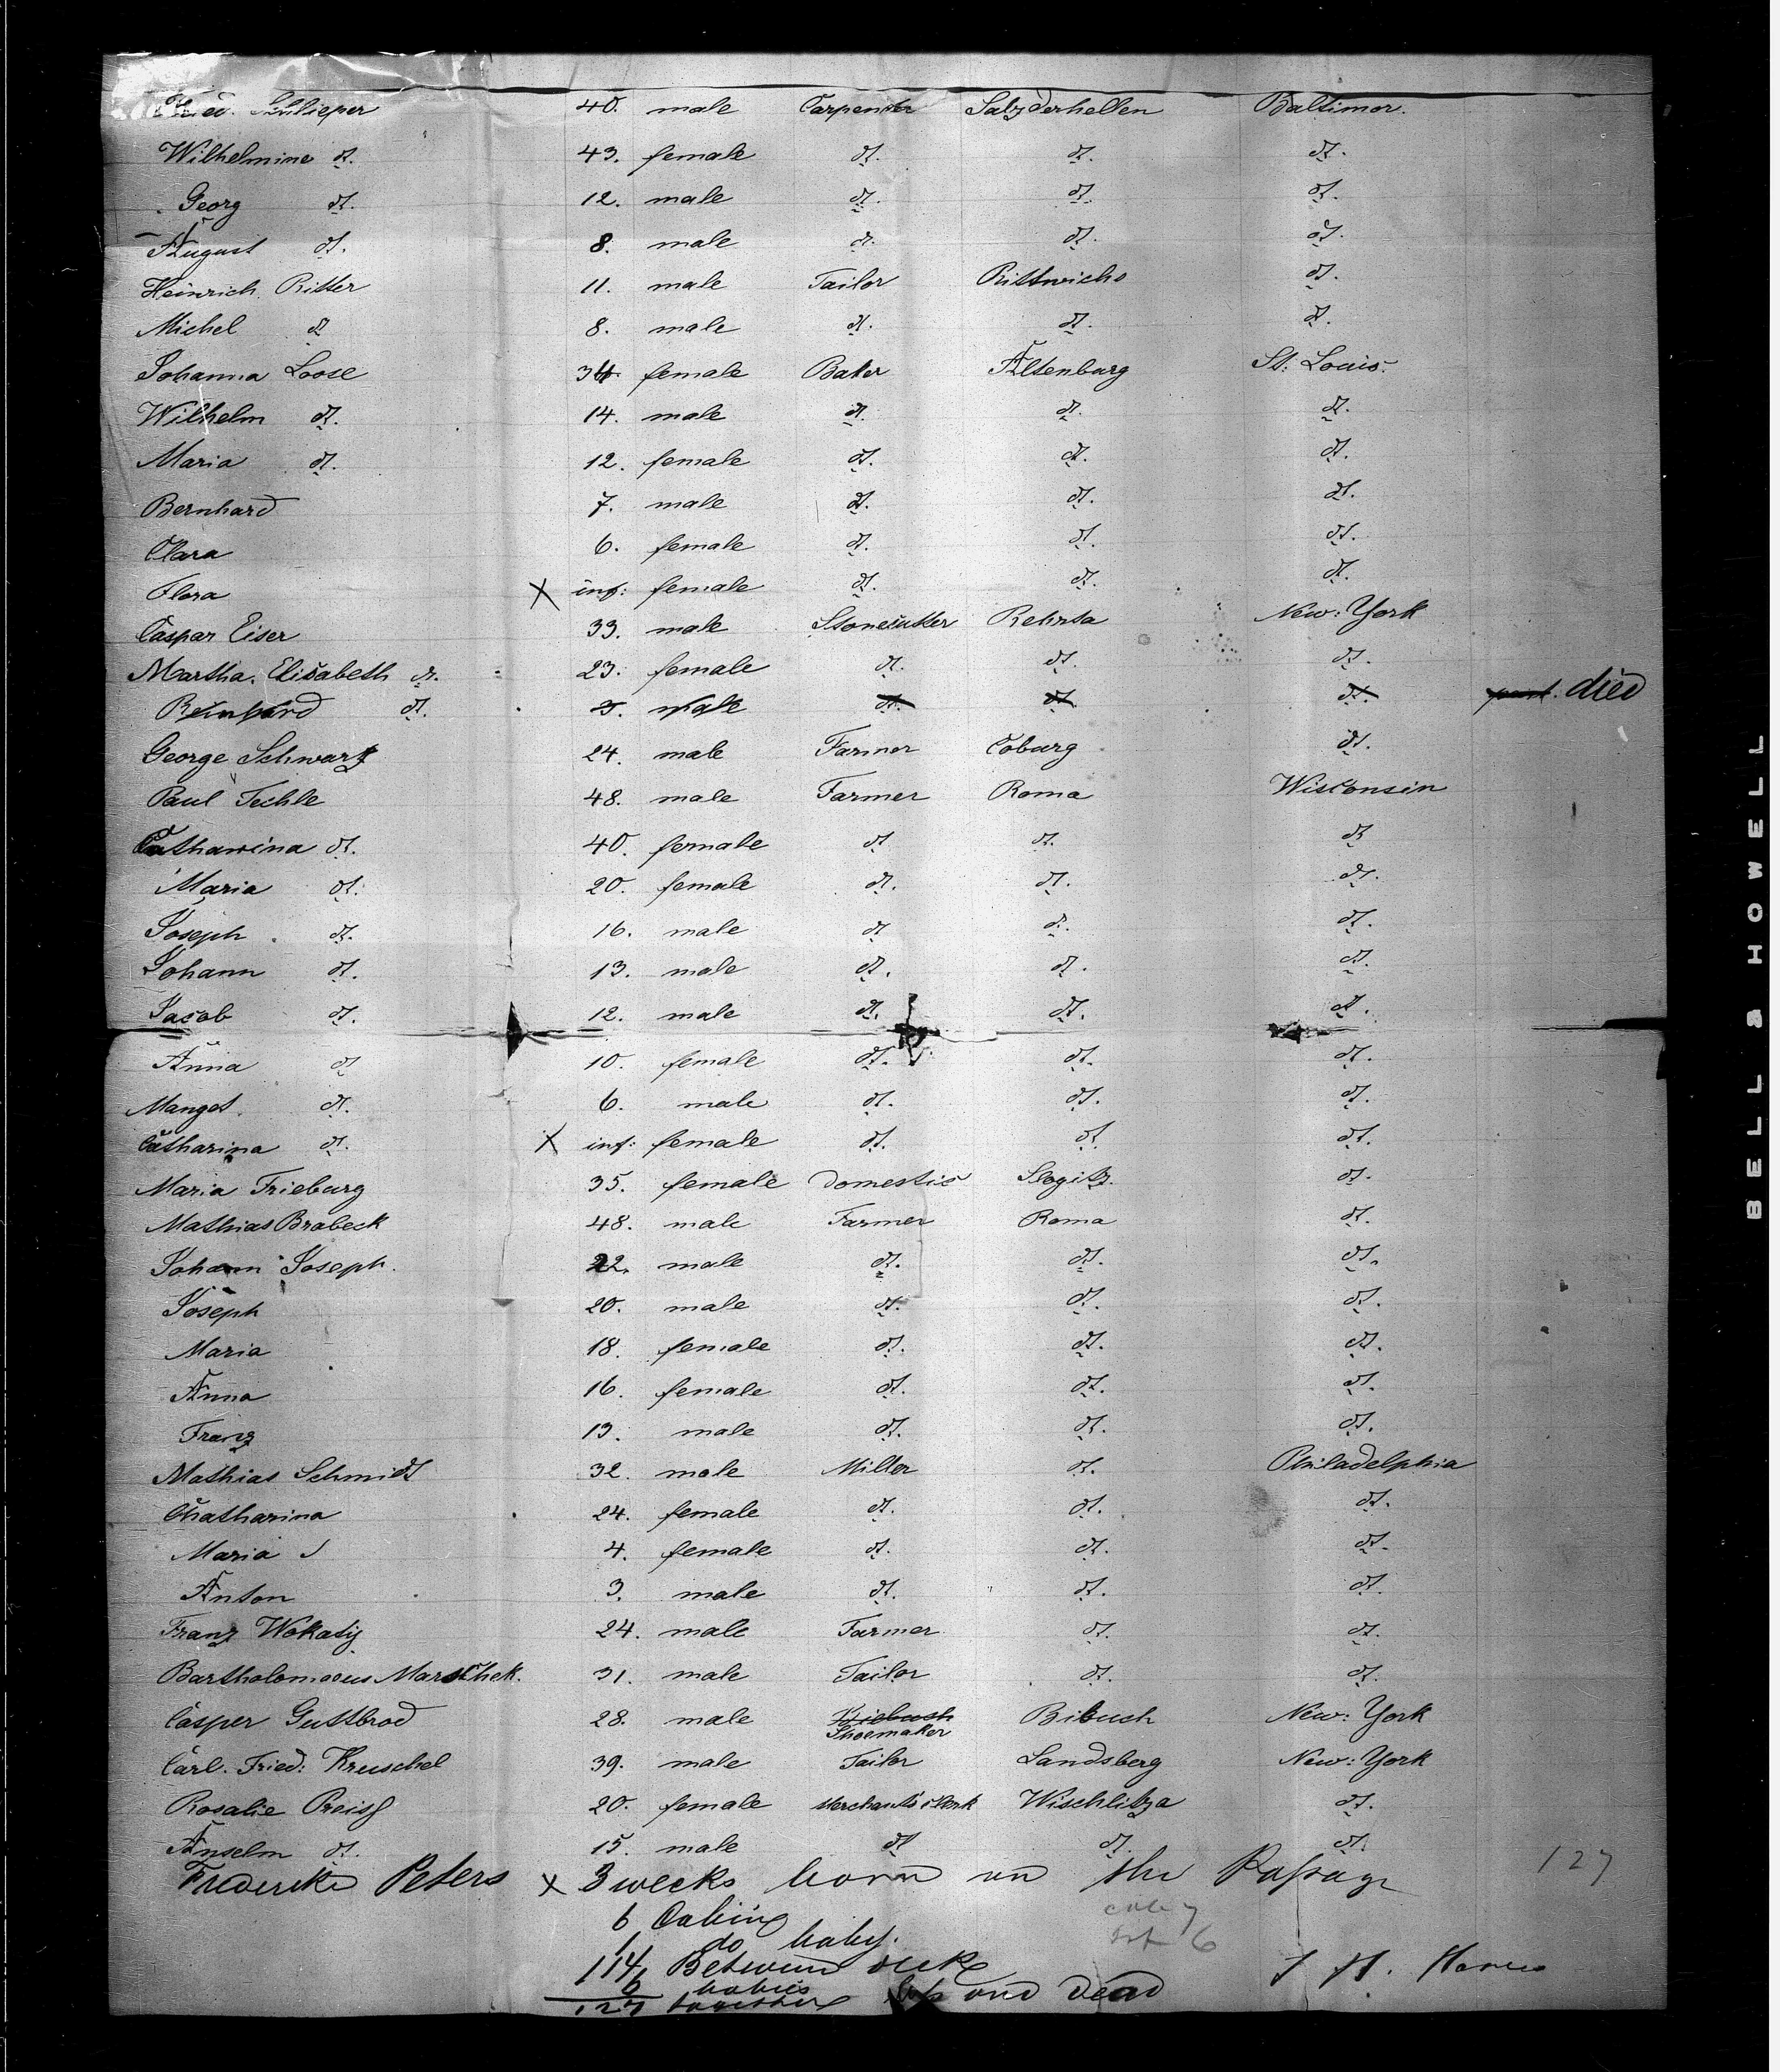 Fried. Schlieper 40. male Carpenter Salzderhellen Baltimor.
Wilhelmine dt. 43. female dt. dt. dt.
Georg dt. 12. male dt. dt. dt.
August dt. 8. male dt. dt. dt.
Heinrich Ritter 11. male Tailor Rittwichs dt.
Michel dt 8. male dt. dt. dt.
Johanna Loose 34. female Baker Altenburg St. Louis.
Wilhelm dt. 14. male dt. dt. dt.
Maria dt. 12. female dt. dt. dt.
Bernhard 7. male dt. dt. dt.
Clara 6. female dt. dt. dt.
Flora X inf: female dt. dt. dt.
Caspar Eiser 33. male Stonecutter Rehrta New: York
Martha. Elisabeth dt. 23. female dt. dt. dt.
Reinhard dt. male dt. dt. dt. died
George Schwarz 24. male Farmer Coburg dt.
Paul Techle 48. male Farmer Roma Wisconsin
Catharina dt. 40. female dt dt. dt
Maria dt. 20. female dt. dt. dt.
Joseph dt. 16. male dt dt. dt.
Johann dt. 13. male dt. dt. dt.
Jacob dt. 12. male dt. dt. dt.
Anna dt 10. female dt. dt. dt.
Manget. dt. 6. male dt. dt. dt.
Catharina dt. X inf: female dt. dt. dt.
Maria Frieburg 35. female Domestic dt.
Mathias Brabeck 48. male Farmer Roma dt.
Johann Joseph. 22. male dt. dt. dt.
Joseph 20. male dt. dt. dt.
Maria 18. female dt. dt. dt.
Anna 16. female dt. dt. dt.
Franz 13. male dt. dt. dt.
Mathias Schmidt 32. male Miller dt. Philadelphia
Chatharina 24. female dt. dt. dt.
Maria 4. female dt. dt. dt.
Anton 3. male dt. dt. dt.
Franz Wokaty 24. male Farmer dt. dt.
Bartholomaeus Marschek. 31. male Tailor dt. dt.
Casper Guttbrod 28. male Biebush Bibuch New: York
Shoemaker
Carl. Fried: Kruschel 39. male Tailor Landsberg New: York
Rosalie Preiss 20. female Merchants clerk Wischlitza dt.
Anselm dt. 15. male dt dt. dt.
Frederike Peters X 3 weeks born on the Passage 127
6 Cabins
1 do baby.
114 Between deck
6 babies
127 together and dead
J. H.
BELL & HOWELL